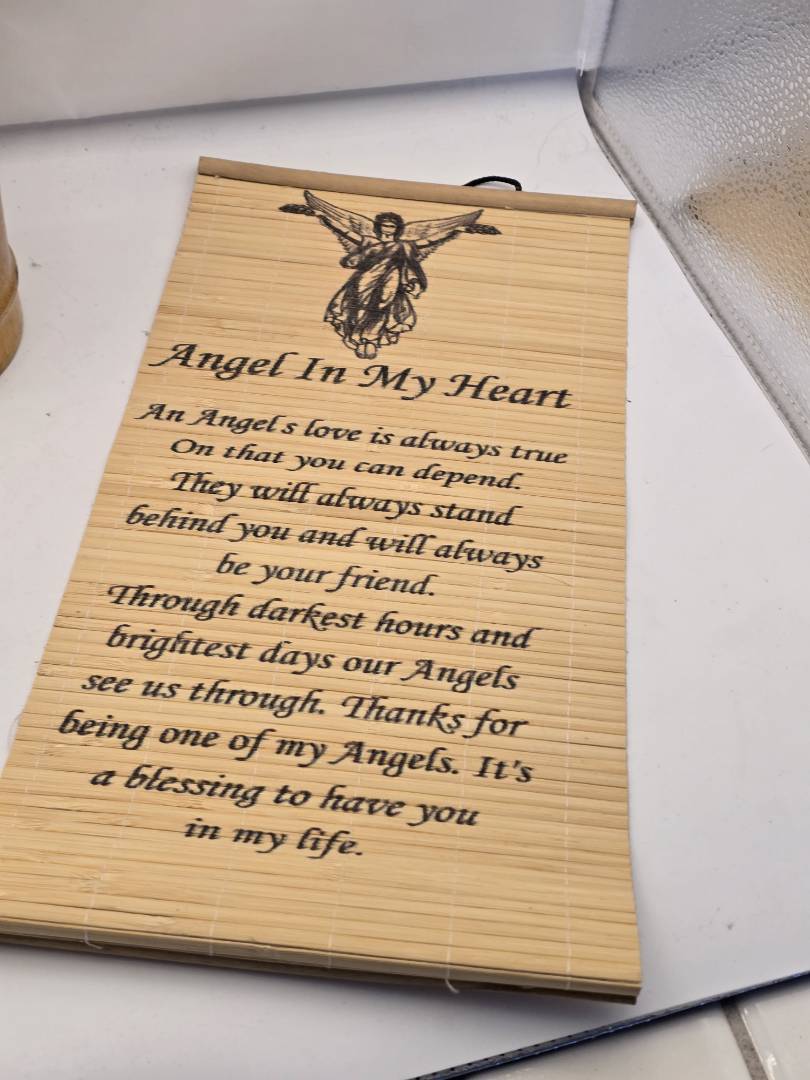 Angel In My Heart
An Angel s love is always true
On that you can depend.
They will always stand
behind you and will always
be your friend.
Through darkest hours and
brightest days our Angels
see us through. Thanks for
being one of my Angels. It's
a blessing to have you
in my life.